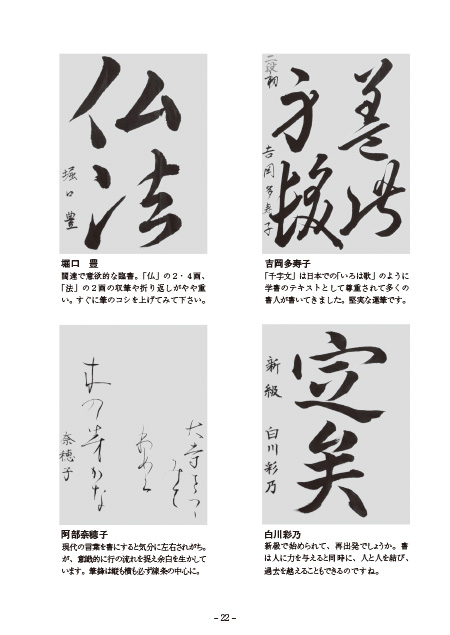 仏法
堀口 豊
堀口　豊
闊達で意欲的な臨書。「仏」の２・４画、
「法」の２画の収筆や折り返しがやや重
い。すぐに筆のコシを上げてみて下さい。
吉岡多寿子
吉岡多寿子
「千字文」は日本での「いろは歌」のように
学書のテキストとして尊重されて多くの
書人が書いてきました。堅実な運筆です。
木の芽かな
奈穂子
阿部奈穂子
現代の言葉を書にすると気分に左右されがち。
が、意識的に行の流れを捉え余白を生かして
います。筆鋒は縦も横も必ず線条の中心に。
定矣
新級 白川彩乃
白川彩乃
新級で始められて、再出発でしょうか。書
は人に力を与えると同時に、人と人を結び、
過去を越えることもできるのですね。
– 22 –